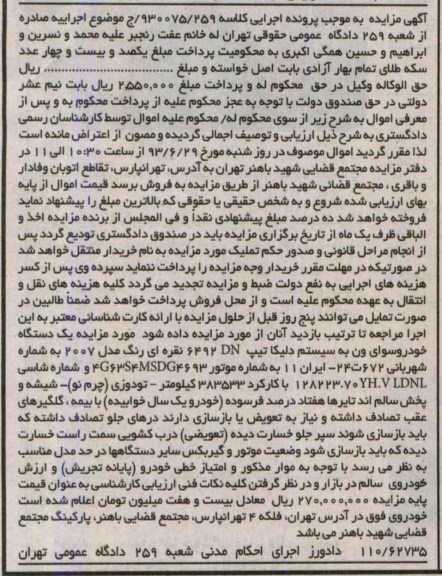 آگهی مزایده به موجب پرونده اجرایی کلاسه ۹۳۰۰۷۵/۲۵۹/ج موضوع اجراییه صادره
از شعبه ۲۵۹ دادگاه عمومی حقوقی تهران له خانم عفت رنجبر علیه محمد و نسرین و
ابراهیم و حسین همگی اکبری به محکومیت پرداخت مبلغ یکصد و بیست و چهار عدد
سکه طلای تمام بهار آزادی بابت اصل خواسته و مبلغ .................................... ریال
حق الوکاله وکیل در حق محکوم له و پرداخت مبلغ ۲۵۵۰,۰۰۰ ریال بابت نیم عشر
دولتی در حق صندوق دولت با توجه به عجز محکوم علیه از پرداخت محکوم به و پس از
معرفی اموال به شرح زیر از سوی محکوم له/ محکوم علیه اموال توسط کارشناسان رسمی
دادگستری به شرح ذیل ارزیابی و توصیف اجمالی گردیده و مصون از اعتراض مانده است
لذا مقرر گردید اموال موصوف در روز شنبه مورخ ۹۳/۶/۲۹ از ساعت ۱۰:۳۰ الی ۱۱ در
دفتر مزایده مجتمع قضایی شهید باهنر تهران به آدرس، تهرانپارس، تقاطع اتوبان وفادار
و باقری ، مجتمع قضائی شهید باهنر از طریق مزایده به فروش برسد قیمت اموال از پایه
بهای ارزیابی شده شروع و به شخص حقیقی یا حقوقی که بالاترین مبلغ را پیشنهاد نماید
فروخته خواهد شد ده درصد مبلغ پیشنهادی نقدا و فی المجلس از برنده مزایده اخذ و
الباقی ظرف یک ماه از تاریخ برگزاری مزایده باید در صندوق دادگستری تودیع گردد پس
از انجام مراحل قانونی و صدور حکم تملیک مورد مزایده به نام خریدار منتقل خواهد شد
در صورتیکه در مهلت مقرر خریدار وجه مزایده را پرداخت ننماید سپرده وی پس از کسر
هزینه های اجرایی به نفع دولت ضبط و مزایده تجدید می گردد کلیه هزینه های نقل و
انتقال به عهده محکوم علیه است و از محل فروش پرداخت خواهد شد ضمنا طالبین در
صورت تمایل می توانند پنج روز قبل از حلول مزایده با ارائه کارت شناسائی معتبر به این
اجرا مراجعه تا ترتیب بازدید آنان از مورد مزایده داده شود مورد مزایده یک دستگاه
خودروسوای ون به سیستم دلیکا تیپ ۶۴۹۲ DN نقره ای رنگ مدل ۲۰۰۷ به شماره
شهربانی ۶۷۲ت۲۴- ایران ۱۱ به شماره موتور ۴G۶۳S۴MSDG۴۶۹۳ و شماره شاسی
۱۲۸۲۲۳.۷۰YH.V LDNL با کارکرد ۳۸۳۵۳۳ کیلومتر - تودوزی (چرم نو)- شیشه و
پخش سالم اند تایرها هفتاد درصد فرسوده (خودرو یک سال خوابیده) با بیمه ، گلگیرهای
عقب تصادف داشته و نیاز به تعویض یا بازسازی دارند درهای جلو تصادف داشته که
باید بازسازی شوند سپر جلو خسارت دیده (تعویضی) درب کشویی سمت راست خسارت
دیده که باید بازسازی شود وضعیت موتور و گیربکس سایر دستگاهها در حد مدل مناسب
به نظر می رسد با توجه به موار مذکور و امتیاز خطی خودرو (پایانه تجریش) و ارزش
خودروی سالم در بازار و در نظر گرفتن کلیه نکات فنی ارزیابی کارشناسی به عنوان قیمت
پایه مزایده ۲۷۰,۰۰۰,۰۰۰ ریال معادل بیست و هفت میلیون تومان اعلام شده است
خودروی فوق در آدرس تهران، فلکه ۴ تهرانپارس، مجتمع قضایی باهنر، پارکینگ مجتمع
قضایی شهید باهنر می باشد
۱۱۰/۶۲۷۳۵ دادورز اجرای احکام مدنی شعبه ۲۵۹ دادگاه عمومی تهران